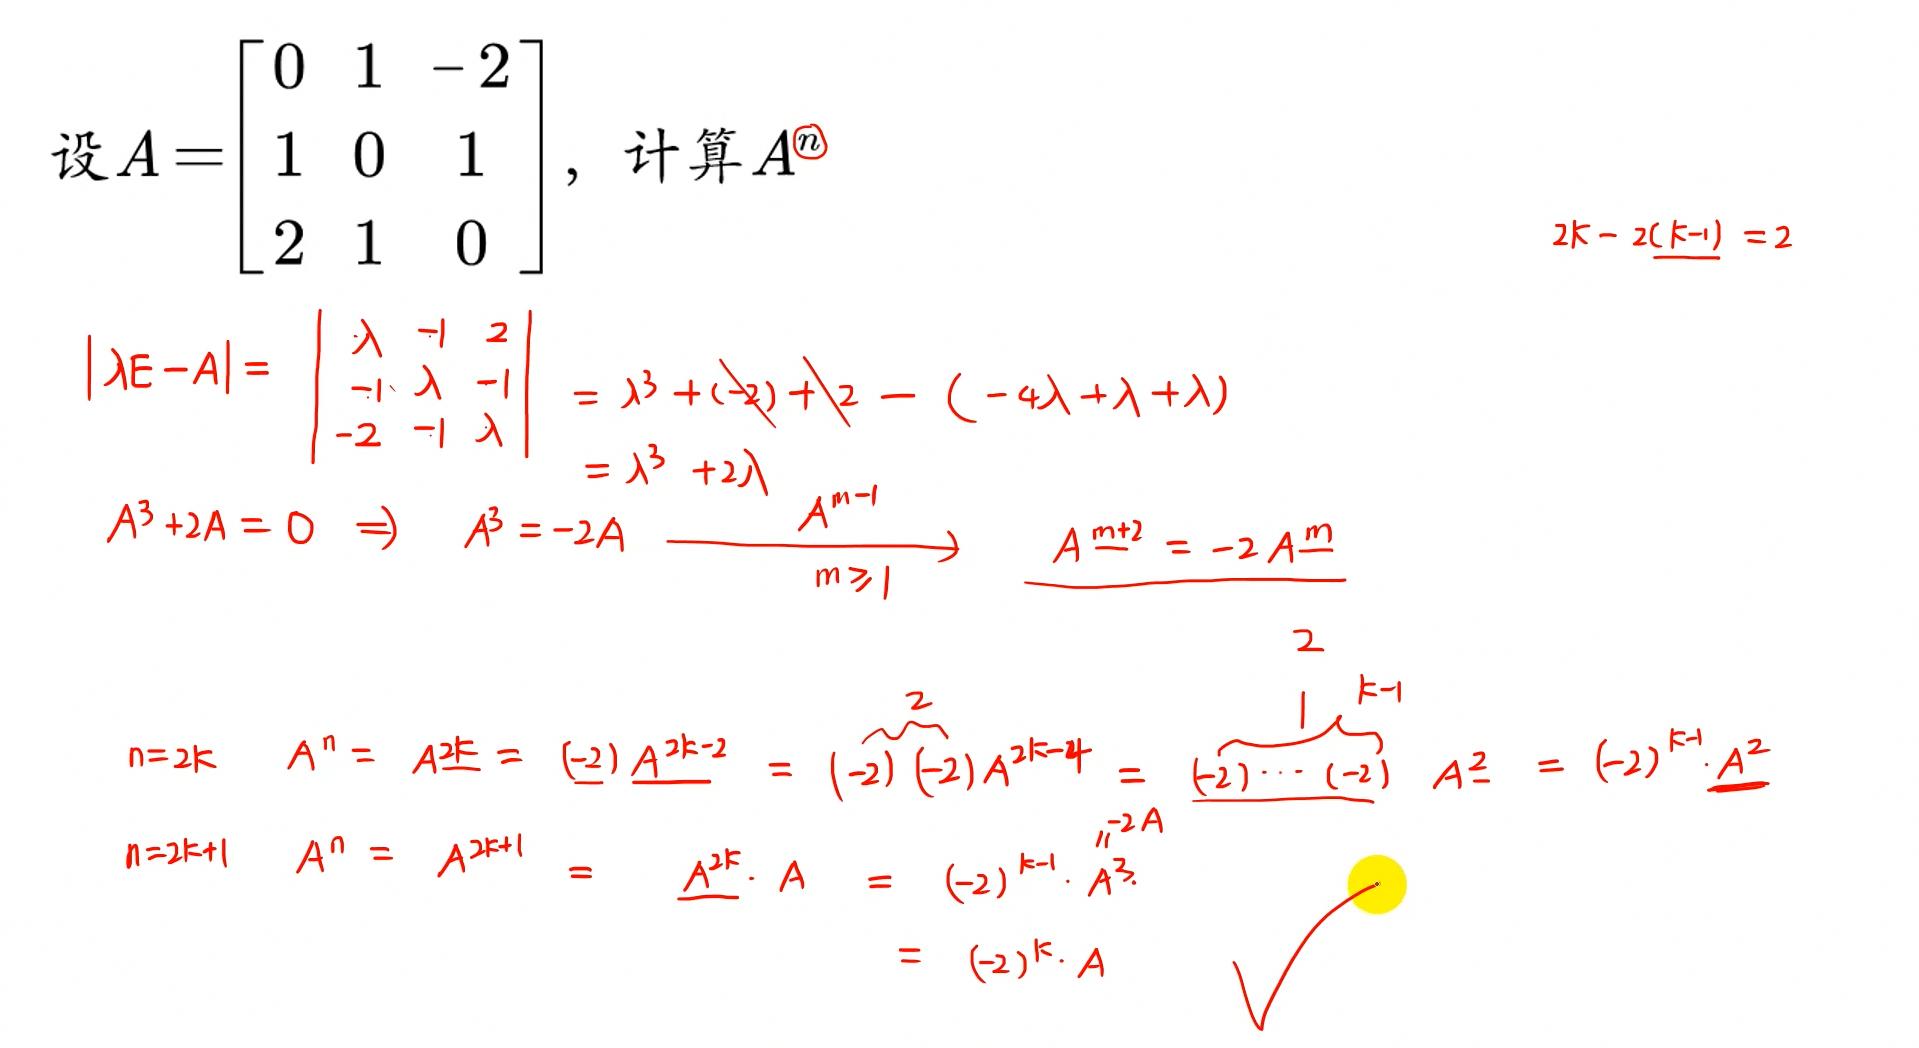 设 A = [ 0 1 -2 ; 1 0 1 ; 2 1 0 ] ，计算 A^n
2k - 2(k-1) = 2
|λE - A| = | λ -1 2 ; -1 λ -1 ; -2 -1 λ | = λ^3 + (-2) + 2 - (-4λ + λ + λ)
= λ^3 + 2λ
A^3 + 2A = 0 ⇒ A^3 = -2A —A^{m-1}, m ≥ 1→ A^{m+2} = -2A^m
2
n=2k A^n = A^{2k} = (-2) A^{2k-2} = (-2)(-2) A^{2k-4} = (-2) ⋯ (-2) A^2 = (-2)^{k-1} · A^2
2
1
k-1
n=2k+1 A^n = A^{2k+1} = A^{2k} · A = (-2)^{k-1} · A^3
= -2A
= (-2)^k · A